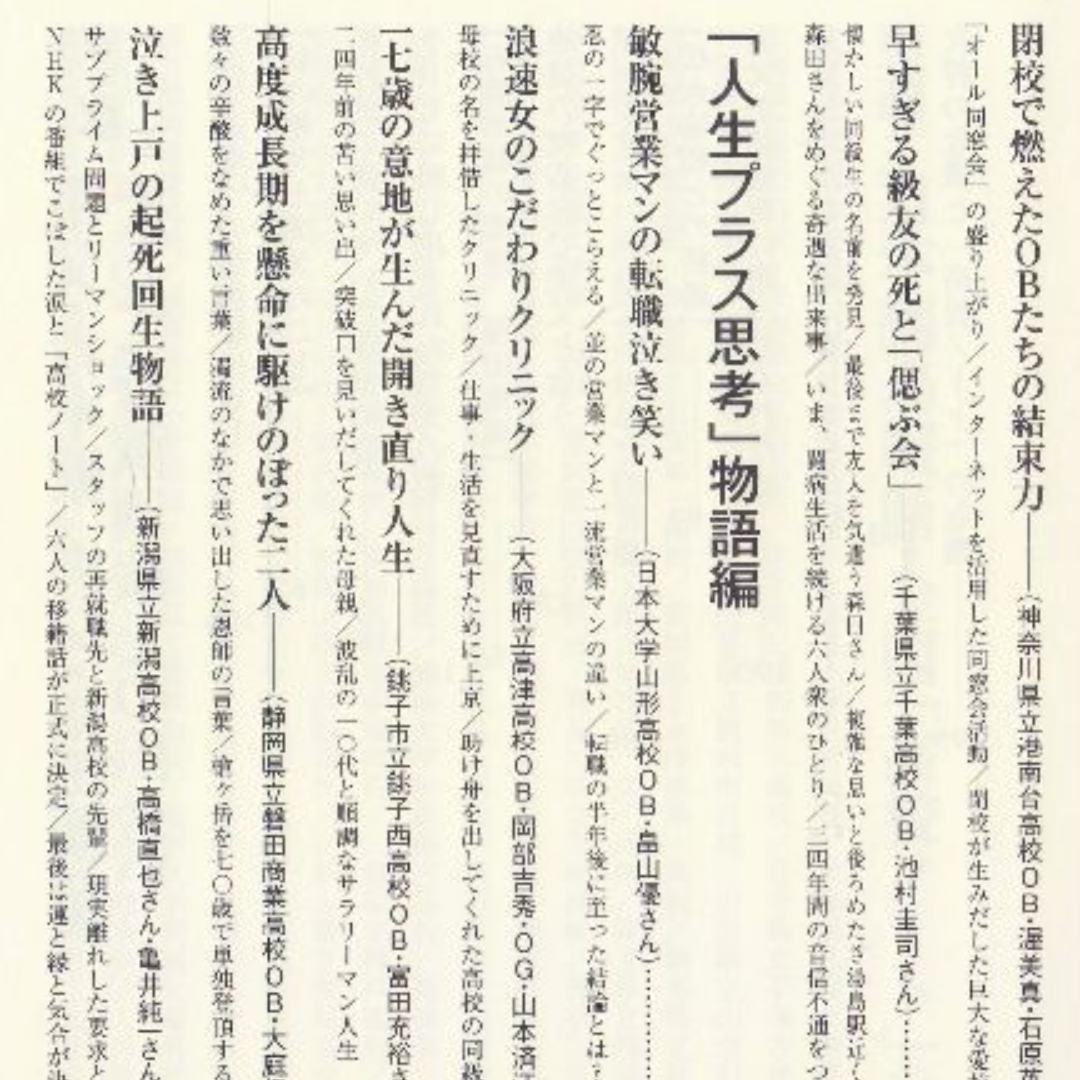 閉校で燃えたOBたちの結束力――(神奈川県立港南台高校OB・渥美真・石原
「オール同窓会」の盛り上がり／インターネットを活用した同窓会活動／閉校が生みだした巨大な愛
早すぎる級友の死と「偲ぶ会」 (千葉県立千葉高校OB・池村圭司さん)……
懐かしい同級生の名前を発見／最後まで友人を気遣う森田さん／複雑な思いと後ろめたさ湯島駅
森田さんをめぐる奇遇な出来事／いま、闘病生活を続ける六人衆のひとり／三四年間の音信不通を
「人生プラス思考」物語編
敏腕営業マンの転職泣き笑い――(日本大学山形高校OB・畠山優さん)…………
忍の一字でぐっとこらえる／並の営業マンと一流営業マンの違い／転職の半年後に至った結論とは？
浪速女のこだわりクリニック――(大阪府立高津高校OB・岡部吉秀・OG・山本済
母校の名を拝借したクリニック／仕事・生活を見直すために上京／助け舟を出してくれた高校の同級
一七歳の意地が生んだ開き直り人生――(銚子市立銚子西高校OB・富田充裕さ
二四年前の苦い思い出／突破口を見いだしてくれた母親／波乱の一〇代と順調なサラリーマン人生
高度成長期を懸命に駆けのぼった二人――(静岡県立磐田商業高校OB・大庭
数々の辛酸をなめた重い言葉／濁流のなかで思い出した恩師の言葉／槍ヶ岳を七〇歳で単独登頂する
泣き上戸の起死回生物語――(新潟県立新潟高校OB・高橋直也さん・亀井純一さん
サブプライム問題とリーマンショック／スタッフの再就職先と新潟高校の先輩／現実離れした要求と
NHKの番組でこぼした涙と「高校ノート」／六人の移籍話が正式に決定／最後は運と縁と気合が